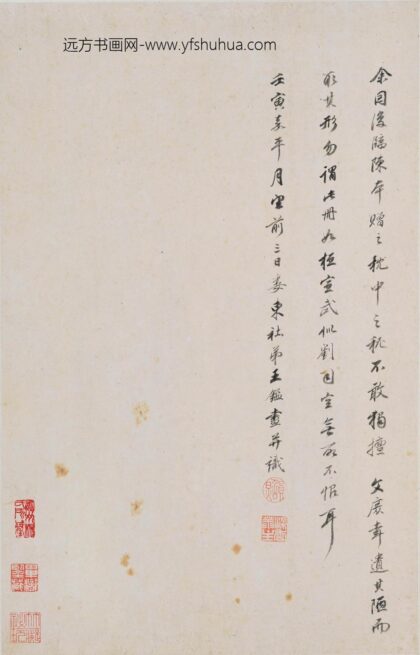 远方书画网-www.yfshuhua.com
余因復臨陳本贈之枕中之秘不敢獨擅 文庶幸遺其陋而
取其形勿謂此冊如桓宣武似劉司空無所不恨耳
壬寅嘉平月望前三日婁東社弟王鑑畫并識